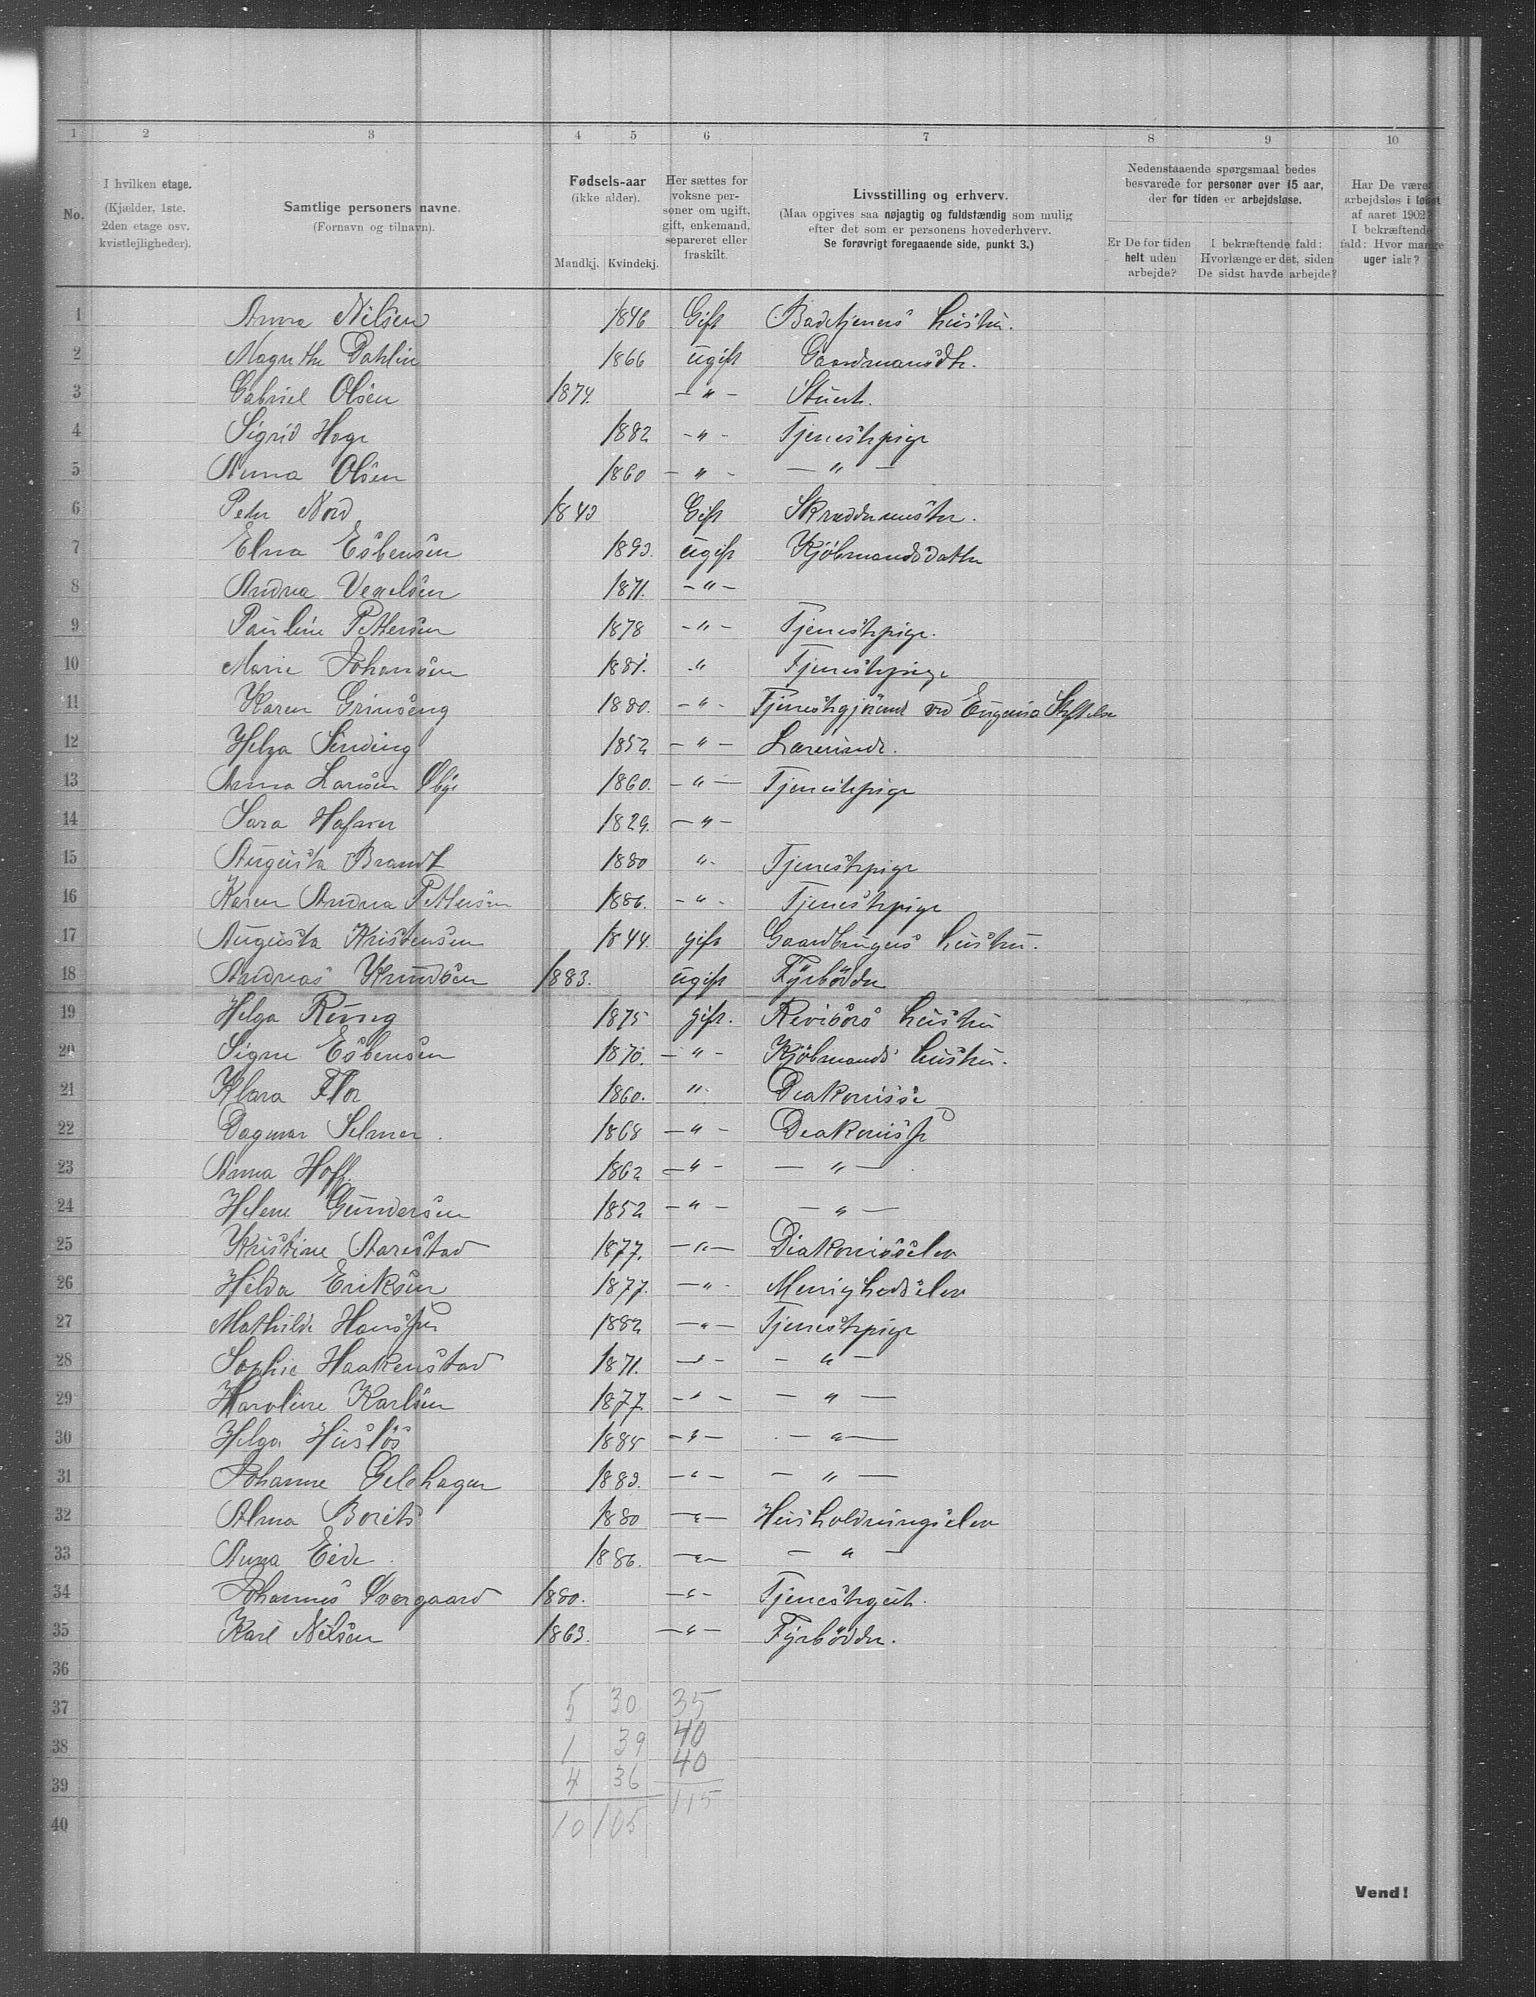 1 2 3 4 5 6 7 8 9 10
No.
I hvilken etage.
(Kjælder, 1ste.
2den etage osv.
kvistlejligheder).
Samtlige personers navne.
(Fornavn og tilnavn).
Fødsels-aar
(ikke alder).
Mandkj. Kvindekj.
Her sættes for
voksne per-
soner om ugift,
gift, enkemand,
separeret eller
fraskilt.
Livsstilling og erhverv.
(Maa opgives saa nøjagtig og fuldstændig som mulig
efter det som er personens hovederhverv.
Se forøvrigt foregaaende side, punkt 3.)
Nedenstaaende spørgsmaal bedes
besvarede for personer over 15 aar,
der for tiden er arbejdsløse.
Er De for tiden
helt uden
arbejde?
I bekræftende fald:
Hvorlænge er det, siden
De sidst havde arbejde?
Har De været
arbejdsløs i løbet
af aaret 1902?
I bekræftende
fald: Hvor mange
uger ialt?
1 Anna Nilsen 1846 Gift Badetjeners hustru.
2 Magrethe Dahlin 1866 ugift Gaardmansdtr.
3 Gabriel Olsen 1874. — " — Stuert.
4 Sigrid Hoge 1882 — " — Tjenestepige
5 Anna Olsen 1860 — " — — " —
6 Peter Nord 1843 Gift Skræddermester.
7 Elna Esbensen 1893. ugift Kjøbmandsdatter
8 Andrea 1871. — " —
9 Pauline Pettersen 1878 — " — Tjenestepige.
10 Marie Johansen 1881. " Tjenestepige
11 Karen Grinseng 1880. — " — ved Eugenia Stiftelse
12 Helga Sinding 1852 — " — Lærerinde.
13 Anna Larsen 1860. — " — Tjenestepige
14 Sara Hafner 1829. — " —
15 Augusta Brandt 1880 " Tjenestepige
16 Karen Andrea Pettersen 1886. — " — Tjenestepige
17 Augusta Kristensen 1844. gift Gaardbrugers hustru.
18 Andreas Knudsen 1883. ugift Fyrbøder
19 Helga Ring 1875 gift. Revisors hustru
20 Signe Esbensen 1870. — " — Kjøbmands hustru.
21 Klara Flor 1860. " Diakonisse
22 Dagmar Selmer. 1868 — " — Deakonisse
23 Anna Hoff. 1862 — " — — " —
24 Helene Gundersen 1852 — " — — " —
25 Kristine Aarestad 1877. — " — Diakonisselev
26 Hilda Eriksen 1877. — " — Menighedselev
27 Mathilde Hansen 1882 — " — Tjenestepige
28 Sophie Haakenstad 1871. — " — — " —
29 Karoline Karlsen 1877. — " — — " —
30 Helga Huslös 1885 — " — — " —
31 Johanne 1883. — " — — " —
32 Alma Borits 1880 — " — Husholdningselev
33 Anna Eide. 1886. — " — — " —
34 Johannes Overgaard 1880. — " — Tjenestegut.
35 Karl Nilsen 1863. — " — Fyrbøder.
36
37 5 30 35
38 1 39 40
39 4 36 40
40 10 105 115
Vend!